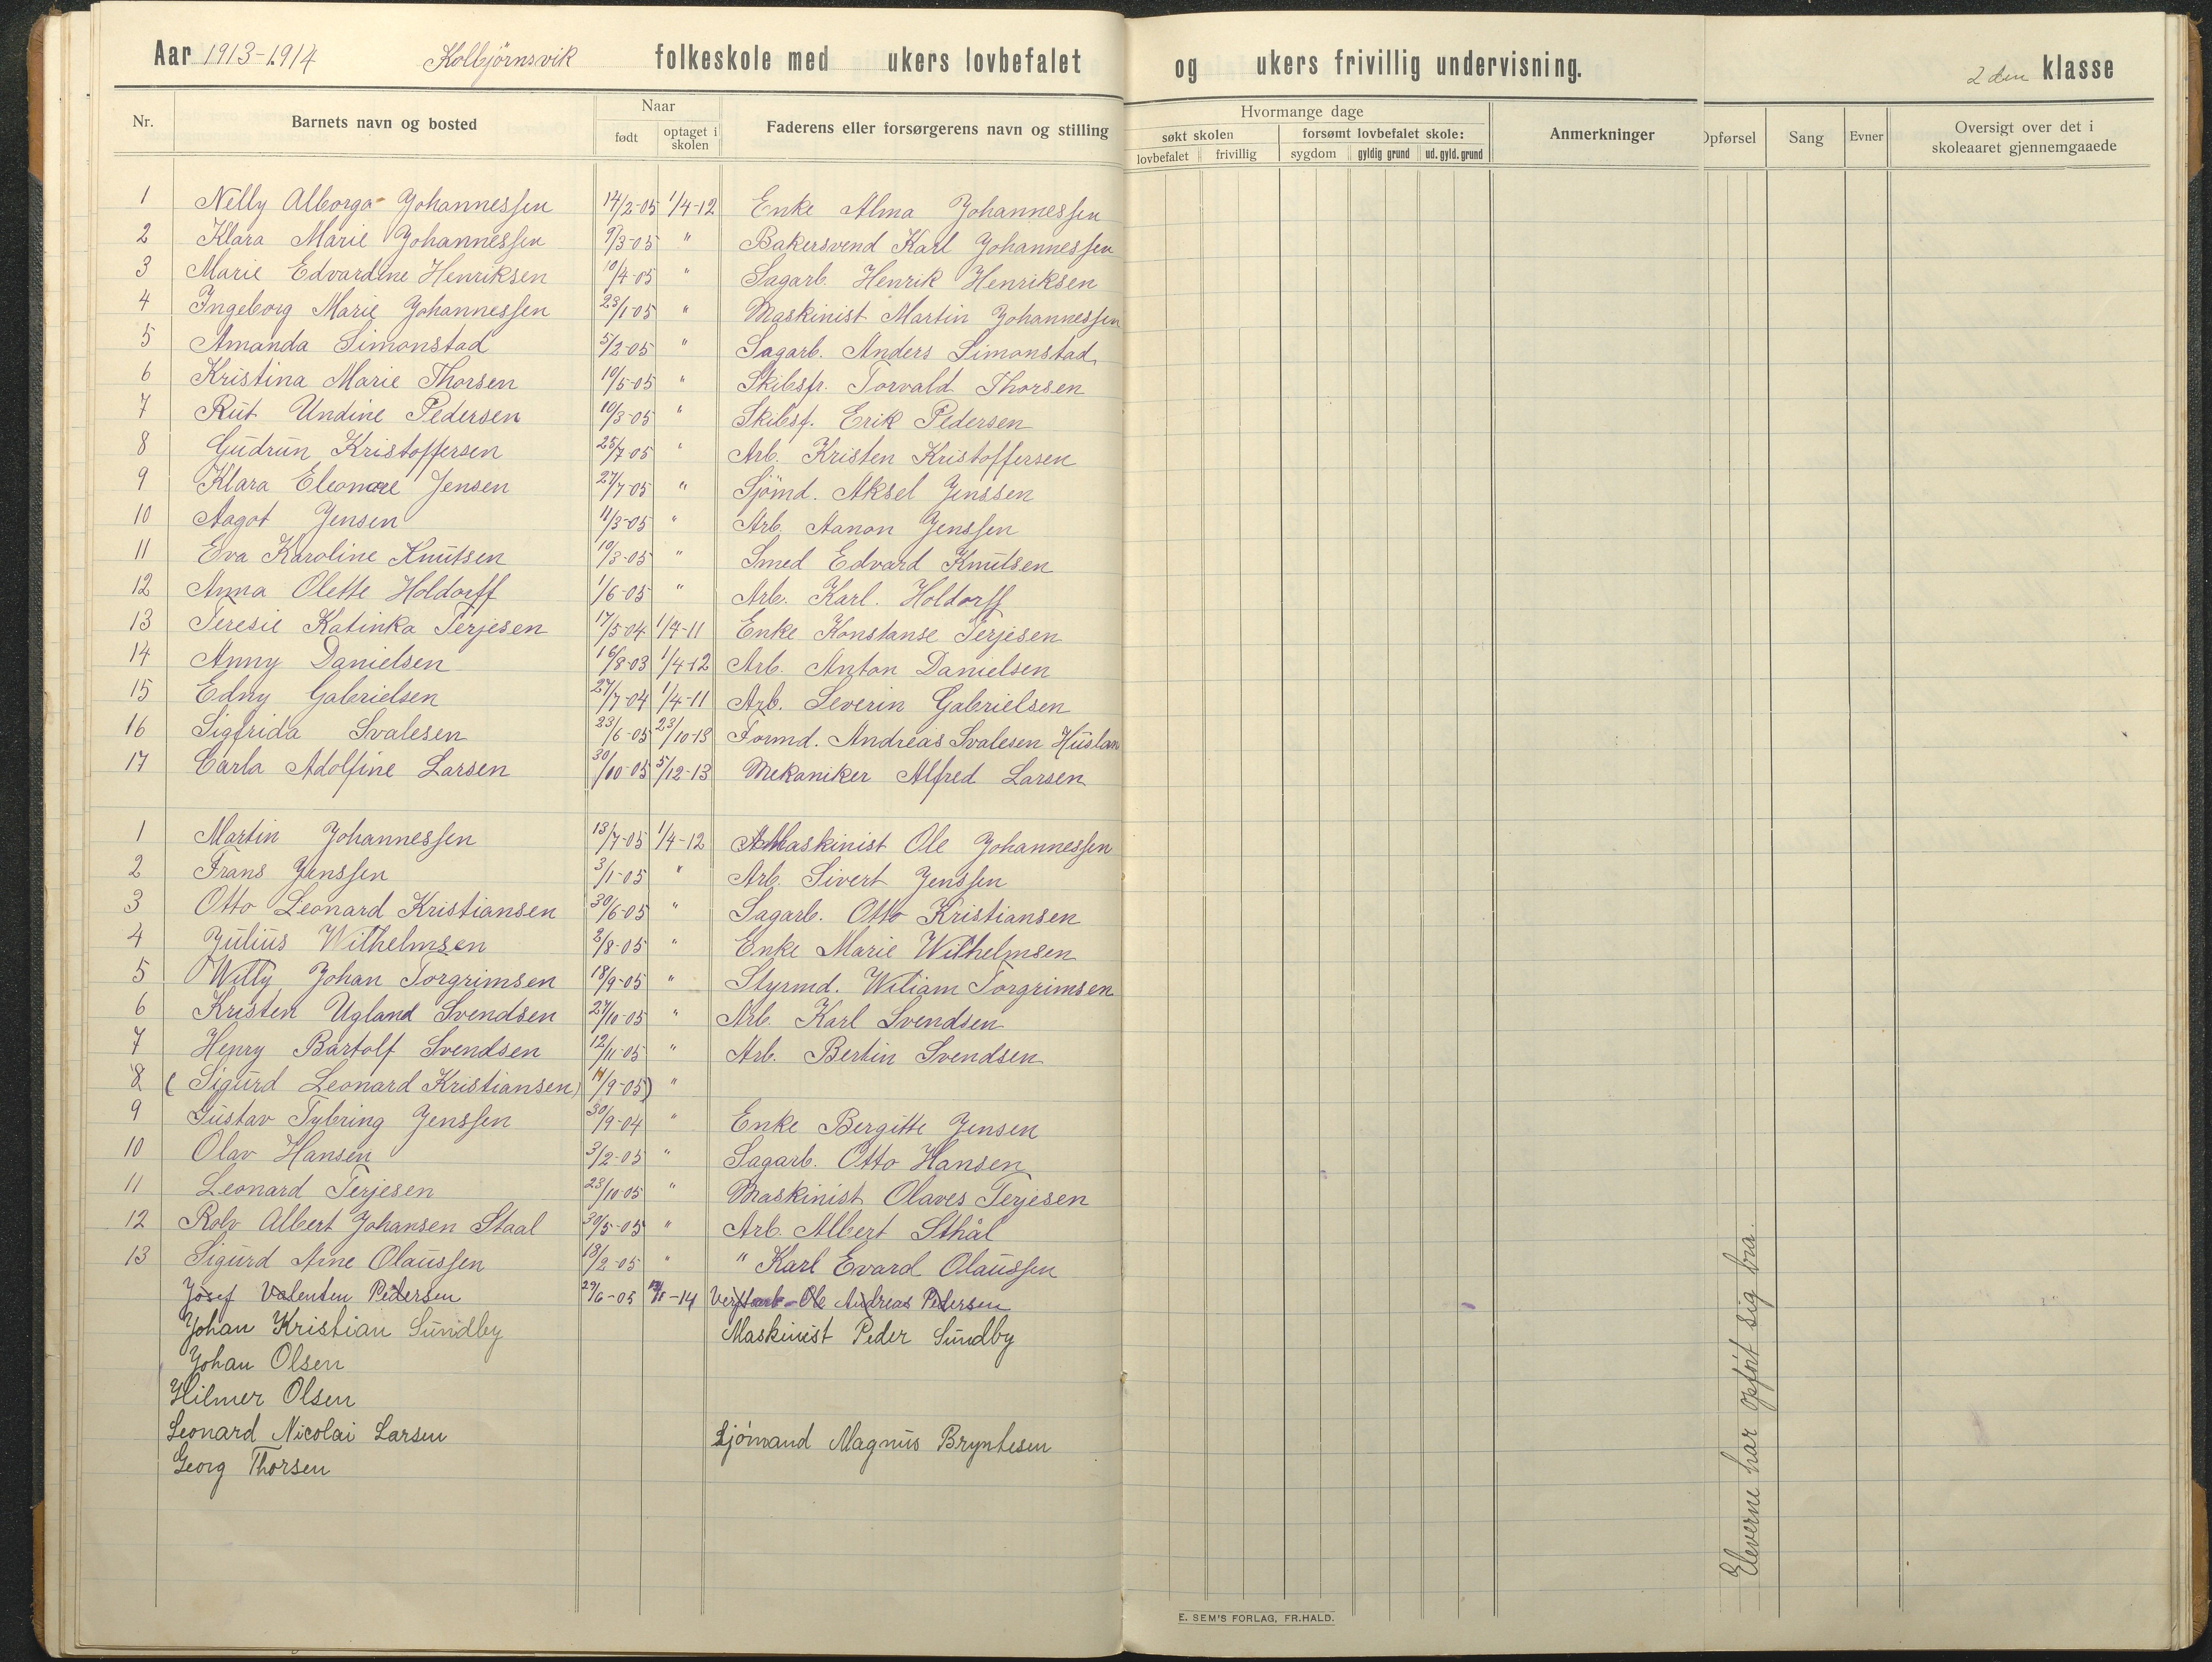 Aar 1913-1914 Kolbjørnsvik folkeskole med ukers lovbefalet og ukers frivillig undervisning. 2den klasse
Nr. Barnets navn og bosted Naar født optaget i skolen Faderens eller forsørgerens navn og stilling Hvormange dage søkt skolen lovbefalet frivillig forsømt lovbefalet skole: sygdom gyldig grund ud. gyld. grund Anmerkninger Opførsel Sang Evner Oversigt over det i skoleaaret gjennemgaaede
1 Nelly Alborga Johannessen 14/2-05 1/4-12 Enke Alma Johannessen
2 Klara Marie Johannessen 9/3-05 " Bakersvend Karl Johannessen
3 Marie Edvardine Henriksen 10/4-05 " Sagarb. Henrik Henriksen
4 Ingeborg Marie Johannessen 23/1-05 " Maskinist Martin Johannessen
5 Amanda Simonstad 5/2-05 " Sagarb. Anders Simonstad
6 Kristina Marie Thorsen 10/5-05 " Skibsfr. Torvald Thorsen
7 Rut Undine Pedersen 10/3-05 " Skibsf. Erik Pedersen
8 Gudrun Kristoffersen 25/7-05 " Arb. Kristen Kristoffersen
9 Klara Eleonore Jensen 27/7-05 " Sjömd. Aksel Jenssen
10 Aagot Jensen 11/3-05 " Arb. Aanon Jenssen
11 Eva Karoline Knutsen 10/3-05 " Smed Edvard Knutsen
12 Anna Olette Holdorff 1/6-05 " Arb. Karl. Holdorff
13 Teresie Katinka Terjesen 17/5-04 1/4-11 Enke Konstanse Terjesen
14 Anny Danielsen 16/8-03 1/4-12 Arb. Anton Danielsen
15 Edny Gabrielsen 27/7-04 1/4-11 Arb. Severin Gabrielsen
16 Sigfrida Svalesen 23/6-05 23/10-13 Formd. Andreas Svalesen
17 Carla Adolfine Larsen 30/10-05 5/12-13 Mekaniker Alfred Larsen
1 Martin Johannessen 13/7-05 1/4-12 Maskinist Ole Johannessen
2 Frans Jenssen 3/1-05 " Arb. Sivert Jenssen
3 Otto Leonard Kristiansen 30/6-05 " Sagarb. Otto Kristiansen
4 Julius Wilhelmsen 2/8-05 " Enke Marie Wilhelmsen
5 Willy Johan Torgrimsen 18/9-05 " Styrmd. Wiliam Torgrimsen
6 Kristen Ugland Svendsen 27/10-05 " Arb. Karl Svendsen
7 Henry Bartolf Svendsen 12/11-05 " Arb. Bertin Svendsen
8 (Sigurd Leonard Kristiansen) 11/9-05) "
9 Gustav Tybring Jenssen 30/9-04 " Enke Bergitte Jensen
10 Olav Hansen 3/2-05 " Sagarb. Otto Hansen
11 Leonard Terjesen 23/10-05 " Maskinist Olaves Terjesen
12 Rolv Albert Johansen Staal 30/5-05 " Arb. Albert Sthål
13 Sigurd Arne Olaussen 13/2-05 " " Karl Evard Olaussen
Josef Valenten Pedersen 29/6-05 Ole Andreas Pedersen
Johan Kristian Sundby Maskinist Peder Sundby
Johan Olsen
Hilmer Olsen
Leonard Nicolai Larsen Sjómand Magnus Bryntesen
Georg Thorsen
Eleverne har opført sig bra.
E. SEM'S FORLAG, FR.HALD.